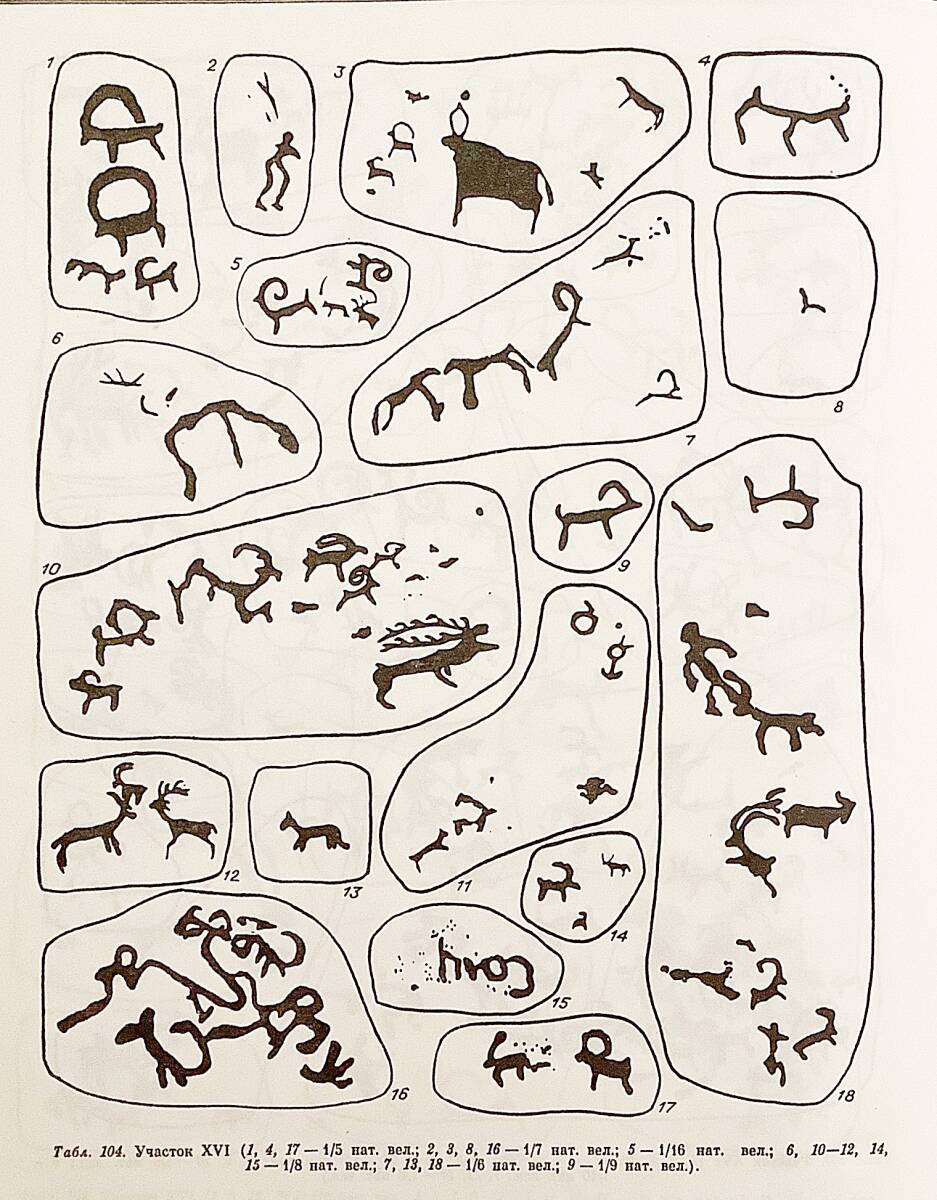 1
2
3
4
5
6
7
8
9
10
11
12
13
14
15
16
17
18
Табл. 104. Участок XVI (1, 4, 17 — 1/5 нат. вел.; 2, 3, 8, 16 — 1/7 нат. вел.; 5 — 1/16 нат. вел.; 6, 10—12, 14,
15 — 1/8 нат. вел.; 7, 13, 18 — 1/6 нат. вел.; 9 — 1/9 нат. вел.).